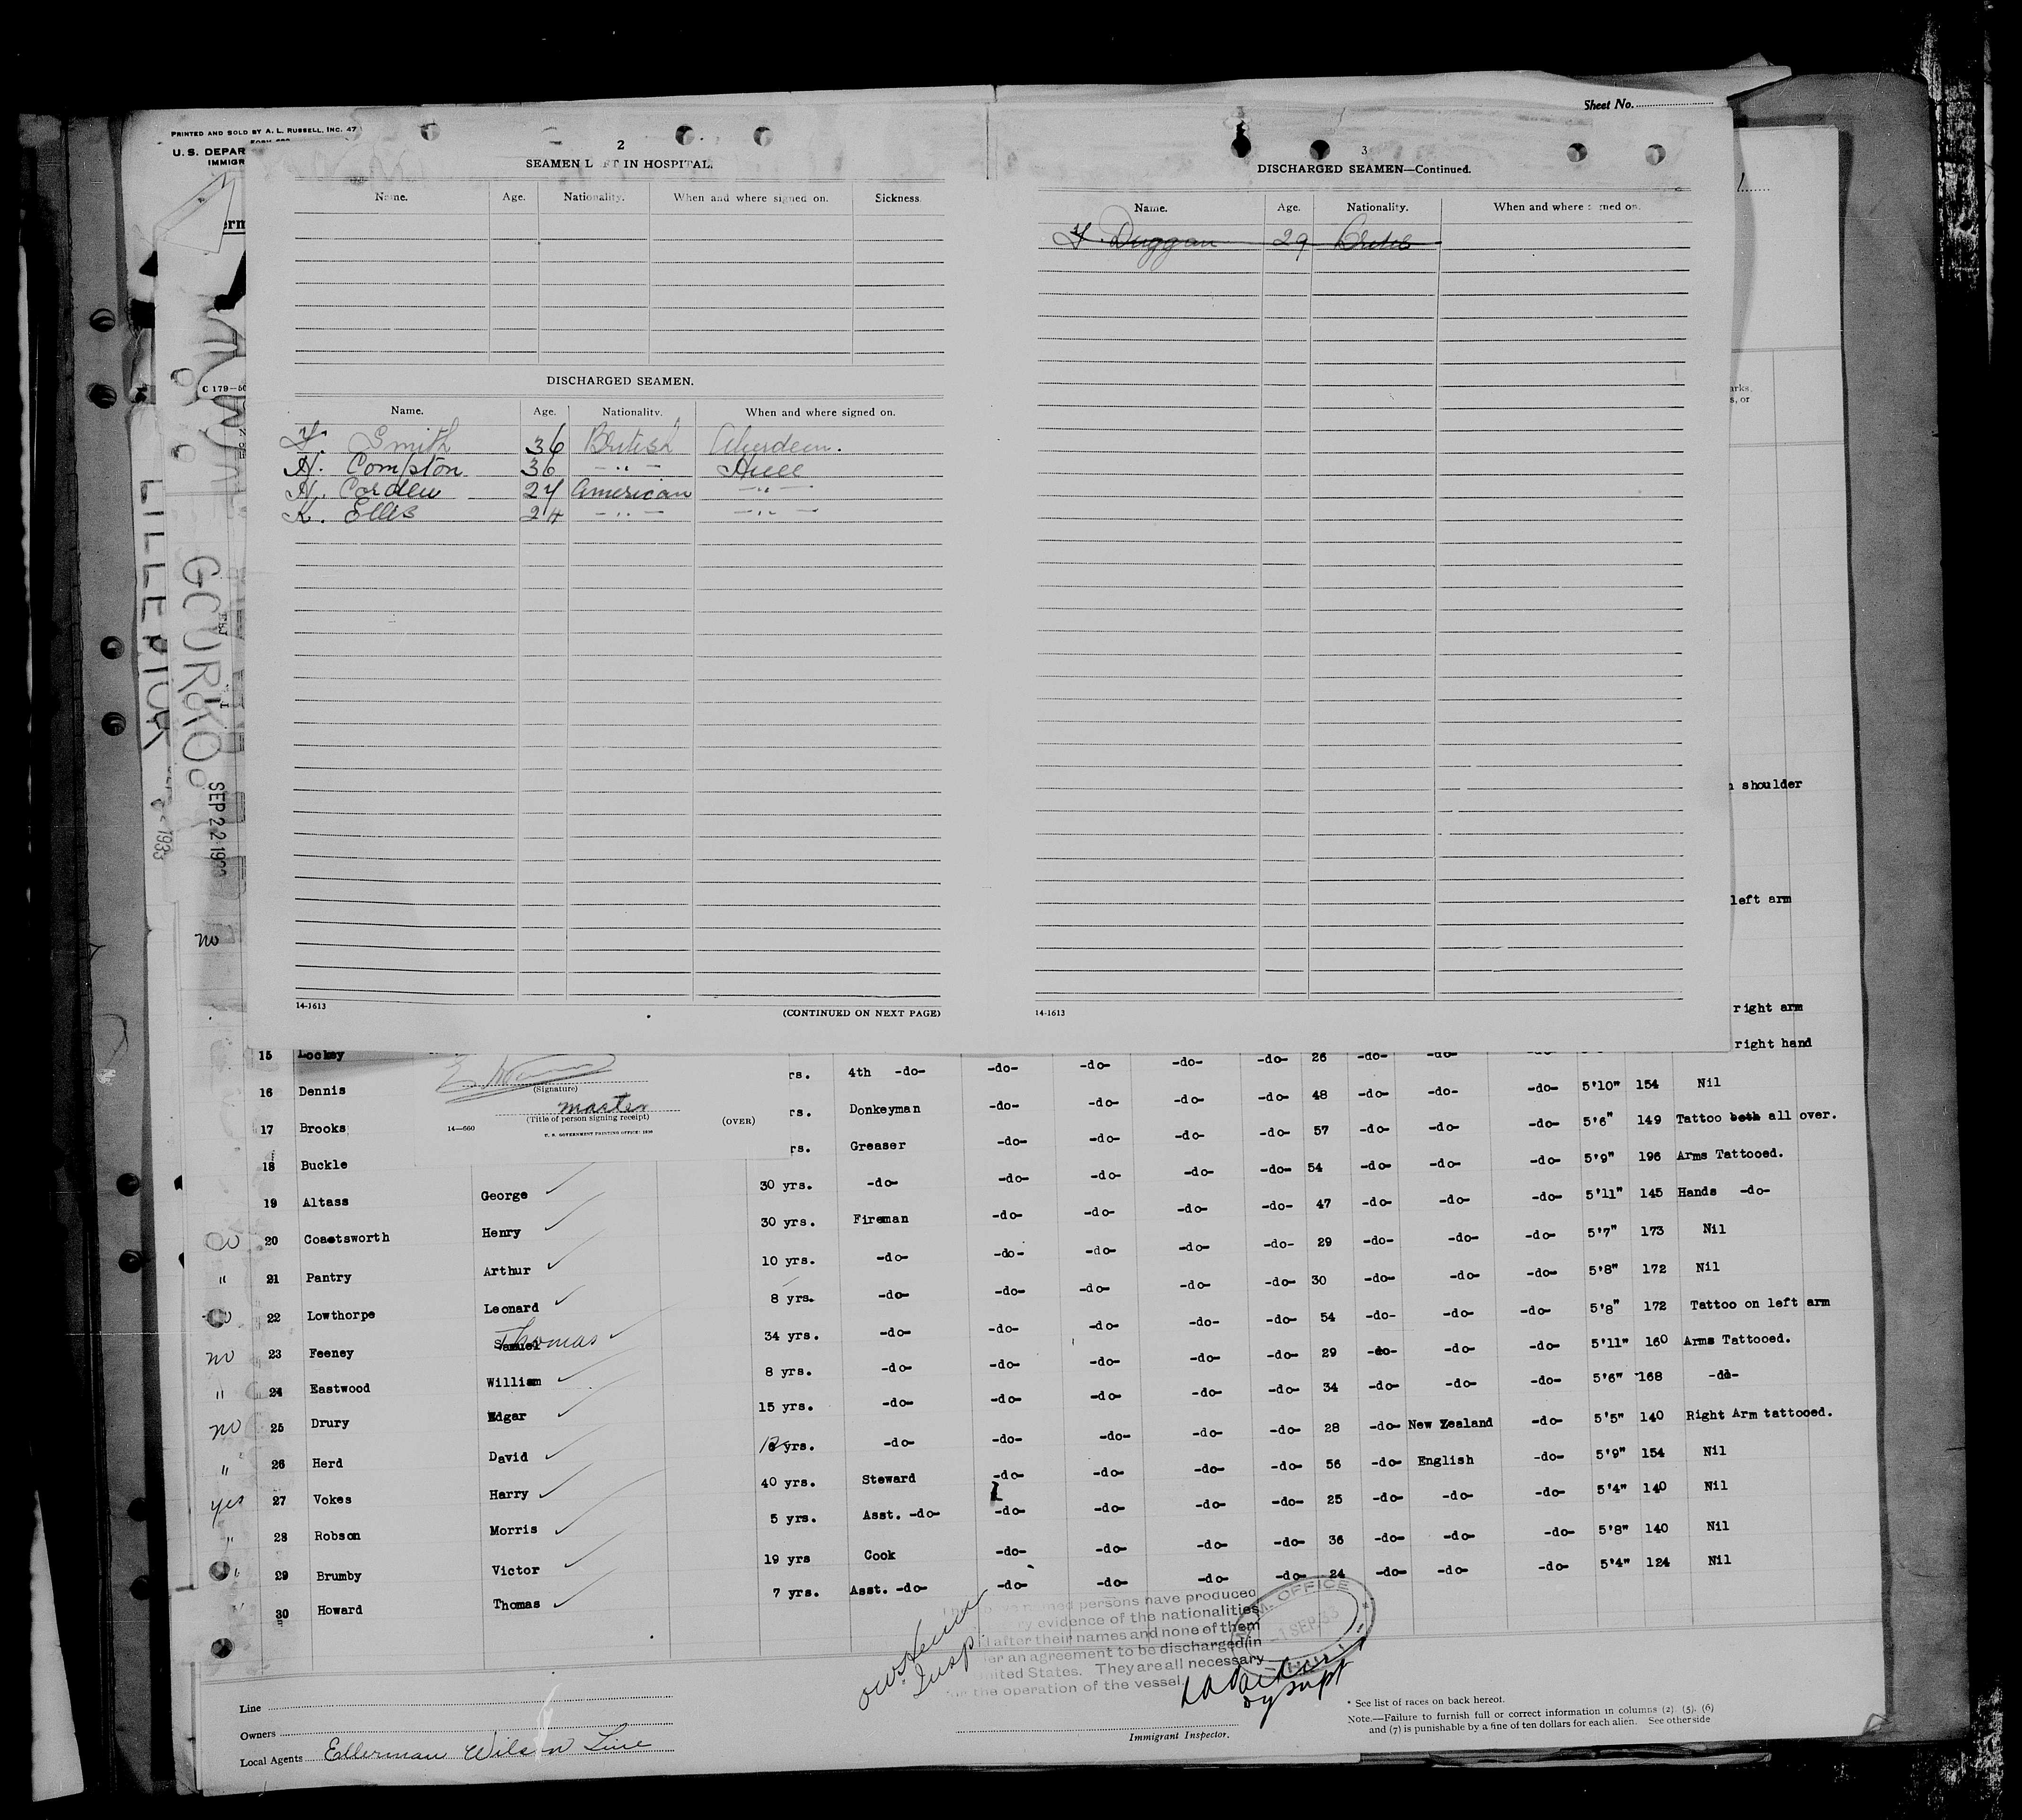 Sheet No.
PRINTED AND SOLD BY A. L. RUSSELL, INC. 47
U. S. DEPAR
IMMIGR
C 179-
LILLEPIOR
GOURKO
SEP 22 1933
1933
2
SEAMEN L FT IN HOSPITAL.
Name. Age. Nationality. When and where signed on. Sickness.
DISCHARGED SEAMEN.
Name. Age. Nationality. When and where signed on.
Smith 36 British Aberdeen.
H. Compton 36 -"- Hull
H. Carden American -"-
K. Ellis 24 -"- -"-
14-1613
(CONTINUED ON NEXT PAGE)
3
DISCHARGED SEAMEN—Continued.
Name. Age. Nationality. When and where med on.
Duggan 29 British
14-1613
arks,
s, or
shoulder
left arm
right arm
right hand
(Signature)
master
(Title of person signing receipt)
14—660
U. S. GOVERNMENT PRINTING OFFICE:
(OVER)
no
15 Lockey rs. 4th -do- -do- -do- -do- -do- 26 -do- -do- -do-
16 Dennis rs. Donkeyman -do- -do- -do- -do- 48 -do- -do- -do- 5'10" 154 Nil
17 Brooks rs. Greaser -do- -do- -do- -do- 57 -do- -do- -do- 5'6" 149 Tattoo both all over.
18 Buckle George 30 yrs. -do- -do- -do- -do- -do- 54 -do- -do- -do- 5'9" 196 Arms Tattooed.
19 Altass Henry 30 yrs. Fireman -do- -do- -do- -do- 47 -do- -do- -do- 5'11" 145 Hands -do-
20 Coaetsworth Arthur 10 yrs. -do- -do- -do- -do- -do- 29 -do- -do- -do- 5'7" 173 Nil
" 21 Pantry Leonard 8 yrs. -do- -do- -do- -do- -do- 30 -do- -do- -do- 5'8" 172 Nil
22 Lowthorpe Samuel Thomas 34 yrs. -do- -do- -do- -do- -do- 54 -do- -do- -do- 5'8" 172 Tattoo on left arm
no 23 Feeney William 8 yrs. -do- -do- -do- -do- -do- 29 -do- -do- -do- 5'11" 160 Arms Tattooed.
" 24 Eastwood Edgar 15 yrs. -do- -do- -do- -do- -do- 34 -do- -do- -do- 5'6" 168 -do-
no 25 Drury David yrs. -do- -do- -do- -do- -do- 28 -do- New Zealand -do- 5'5" 140 Right Arm tattooed.
" 26 Herd Harry 40 yrs. Steward -do- -do- -do- -do- 56 -do- English -do- 5'9" 154 Nil
yes 27 Vokes Morris 5 yrs. Asst. -do- -do- -do- -do- -do- 25 -do- -do- -do- 5'4" 140 Nil
" 28 Robson Victor 19 yrs Cook -do- -do- -do- -do- 36 -do- -do- -do- 5'8" 140 Nil
" 29 Brumby Thomas 7 yrs. Asst. -do- -do- -do- -do- -do- 24 -do- -do- -do- 5'4" 124 Nil
30 Howard
named persons have produced
ry evidence of the nationalities
after their names and none of them
er an agreement to be discharged in
nited States. They are all necessary
the operation of the vessel.
OFFICE
1 SEP 33
Insp.
Immigrant Inspector.
Line
Owners
Local Agents Ellerman Wilson Line
* See list of races on back hereof.
Note.—Failure to furnish full or correct information in columns (2) (5), (6)
and (7) is punishable by a fine of ten dollars for each alien. See other side